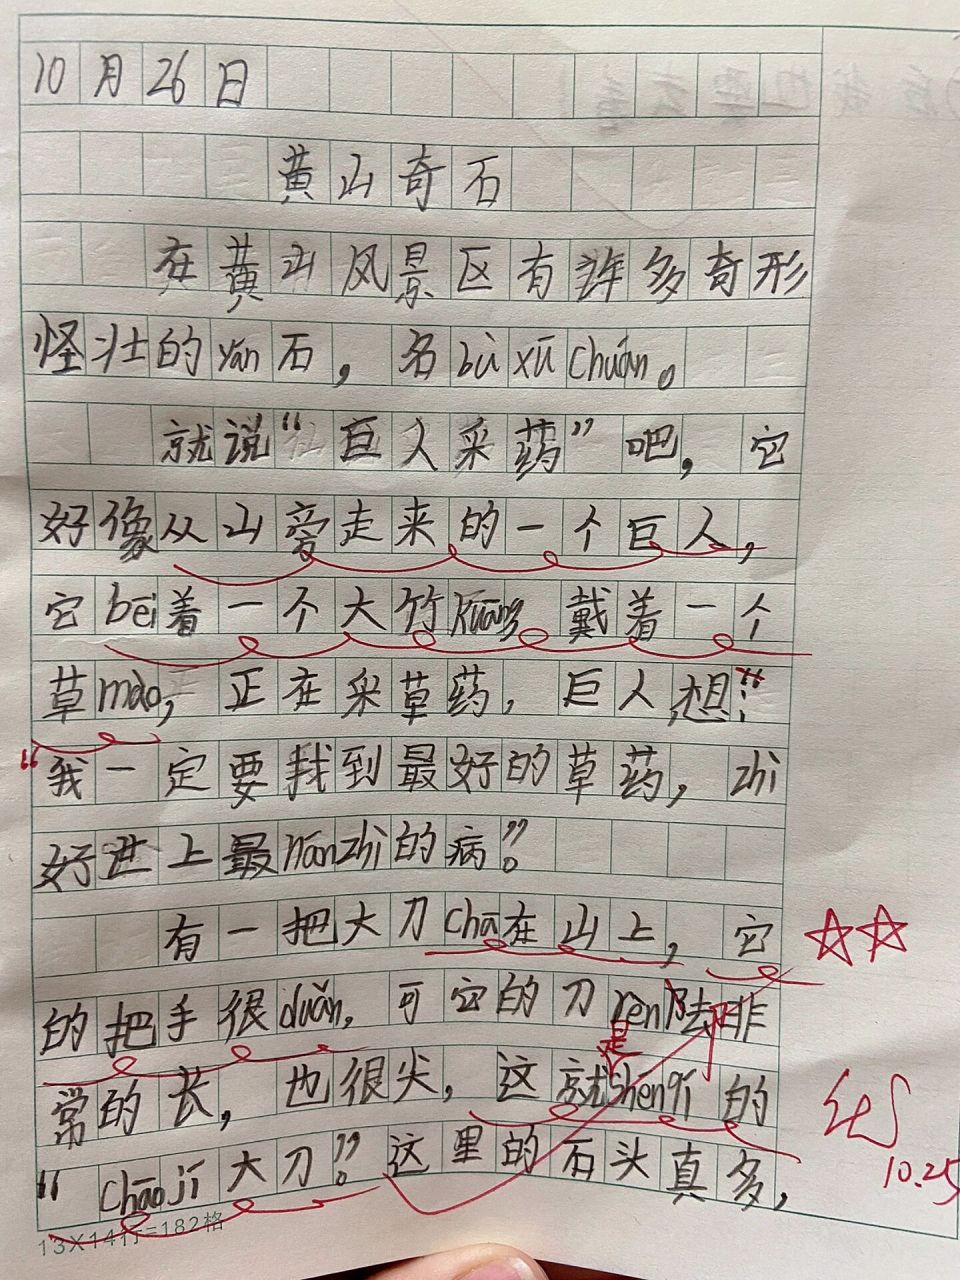 10月26日
黄山奇石
在黄山风景区有许多奇形
怪壮的yán石，名bù xū chuán。
就说“巨人采药”吧，它
好像从山旁走来的一个巨人，
它bēi着一个大竹kuāng戴着一个
草mào，正在采草药，巨人想：“
“我一定要找到最好的草药，zhì
好进上最nánzhì的病”。
有一把大刀chā在山上，它
的把手很duǎn，可它的刀rèn却非
是
常的长，也很尖，这就shénqí的
“chāojí大刀”。这里的石头真多，
10.25
13X14行=182格